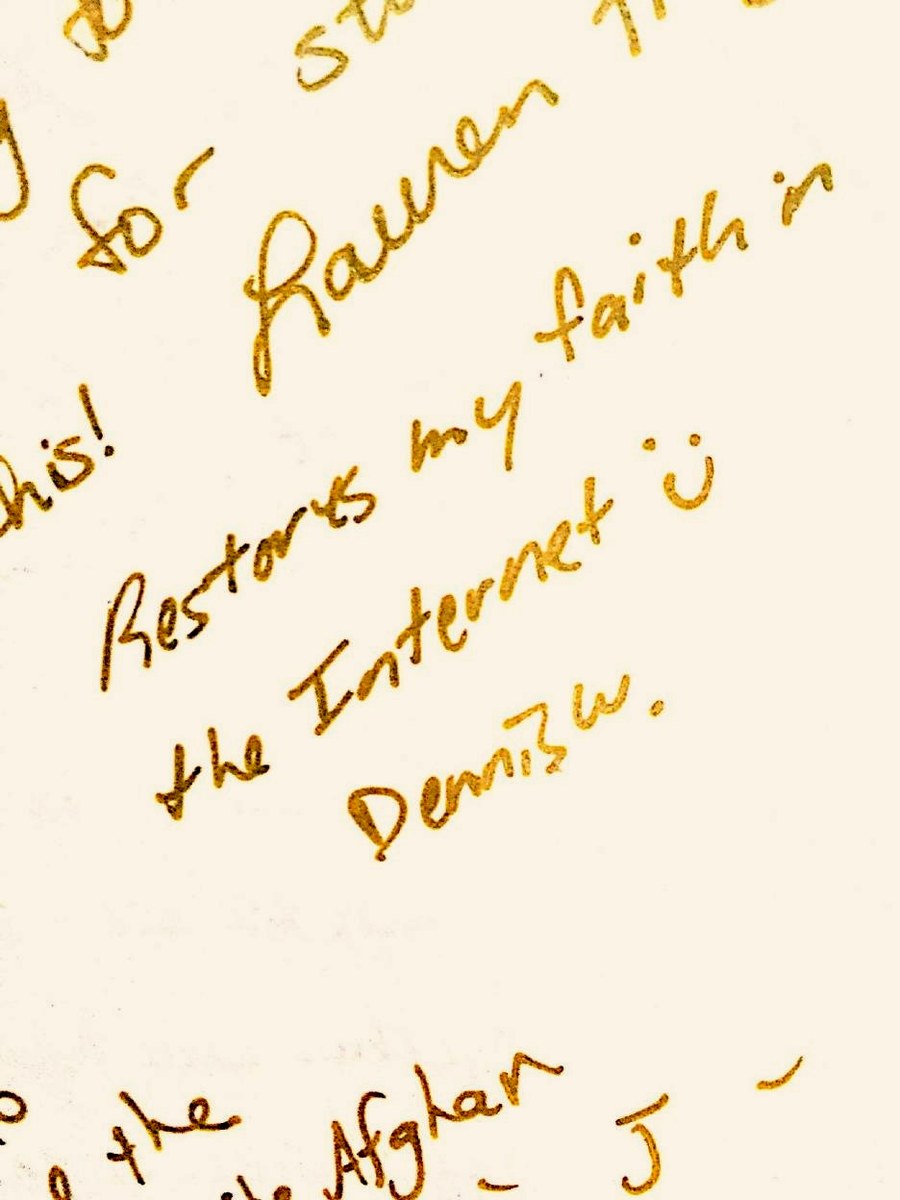 for
Lauren
this!
Restores my faith in
the Internet
Dennis W.
the
Afghan
J